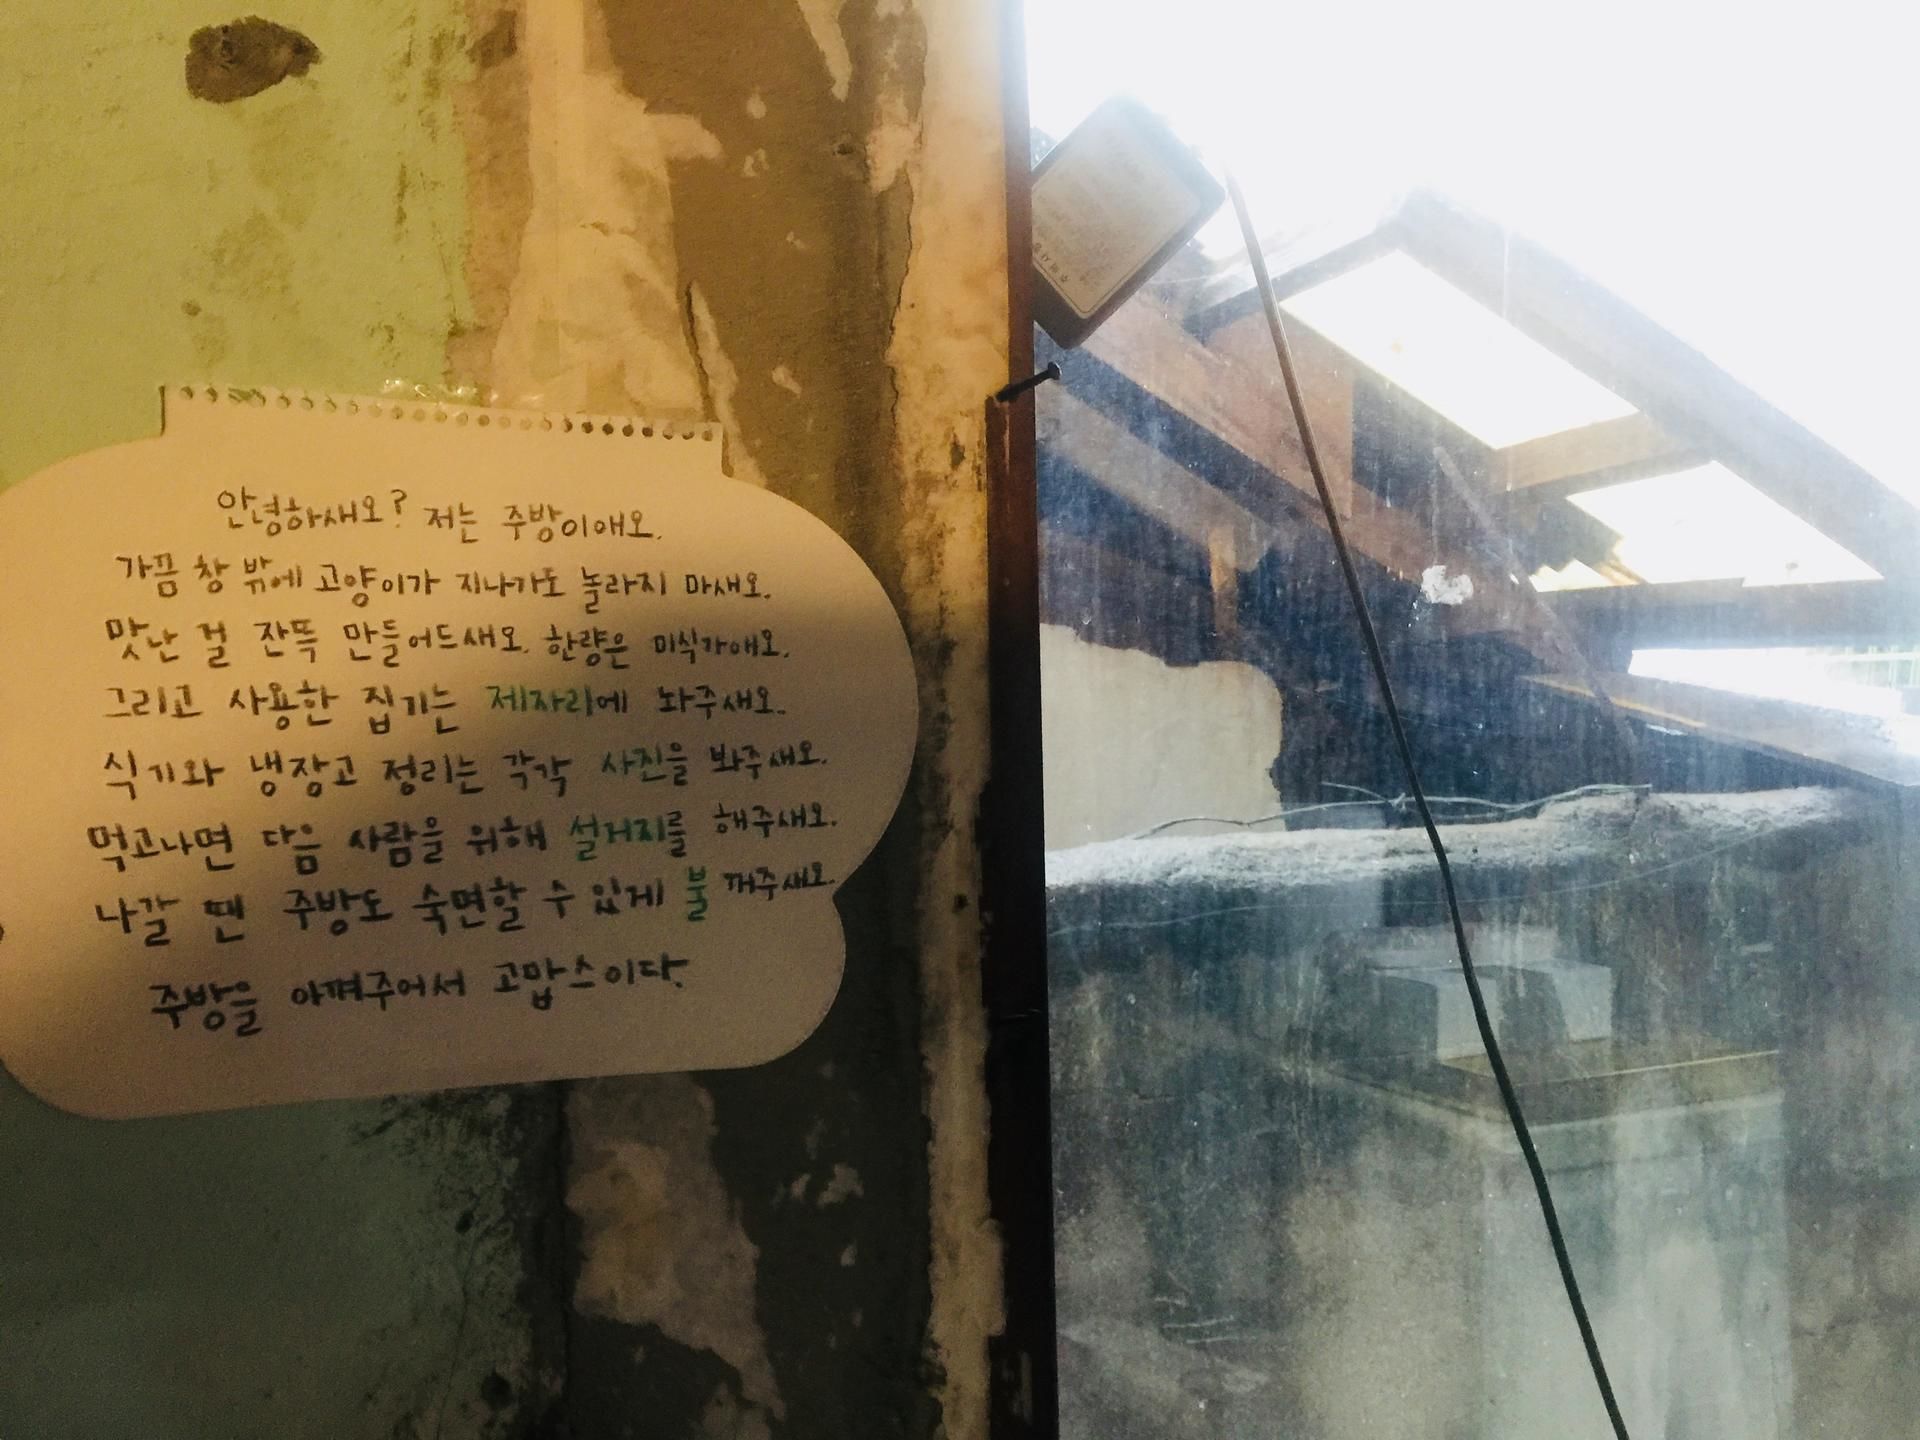 안녕하새요? 저는 주방이애요.
가끔 창 밖에 고양이가 지나가도 놀라지 마새요.
맛난 걸 잔뜩 만들어드새요. 한량은 미식가애요.
그리고 사용한 집기는 제자리에 놔주새요.
식기와 냉장고 정리는 각각 사진을 봐주새요.
먹고나면 다음 사람을 위해 설거지를 해주새요.
나갈 땐 주방도 숙면할 수 있게 불 꺼주새요.
주방을 아껴주어서 고맙스이다.